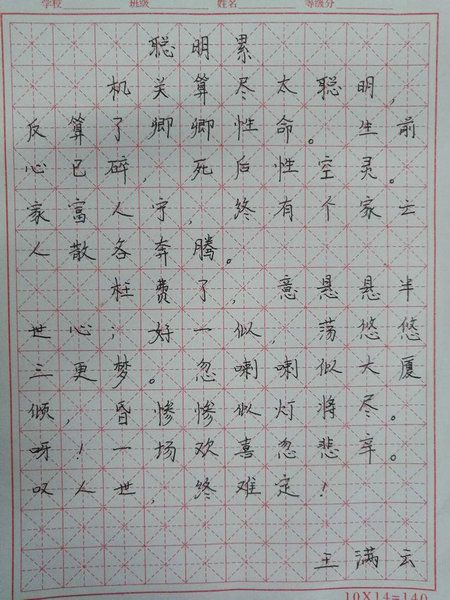 学校 班级 姓名 等级分
聪明累
机关算尽太聪明,
反算了卿卿性命。生前
心已碎,死后性空灵。
家富人宁,终有个家云
人散各奔腾。
枉费了,意悬悬半
世心;好一似,荡悠悠
三更梦。忽喇喇似大厦
倾,昏惨惨似灯将尽。
呀!一场欢喜忽悲辛。
叹人世,终难定!
王满云
10X14=140